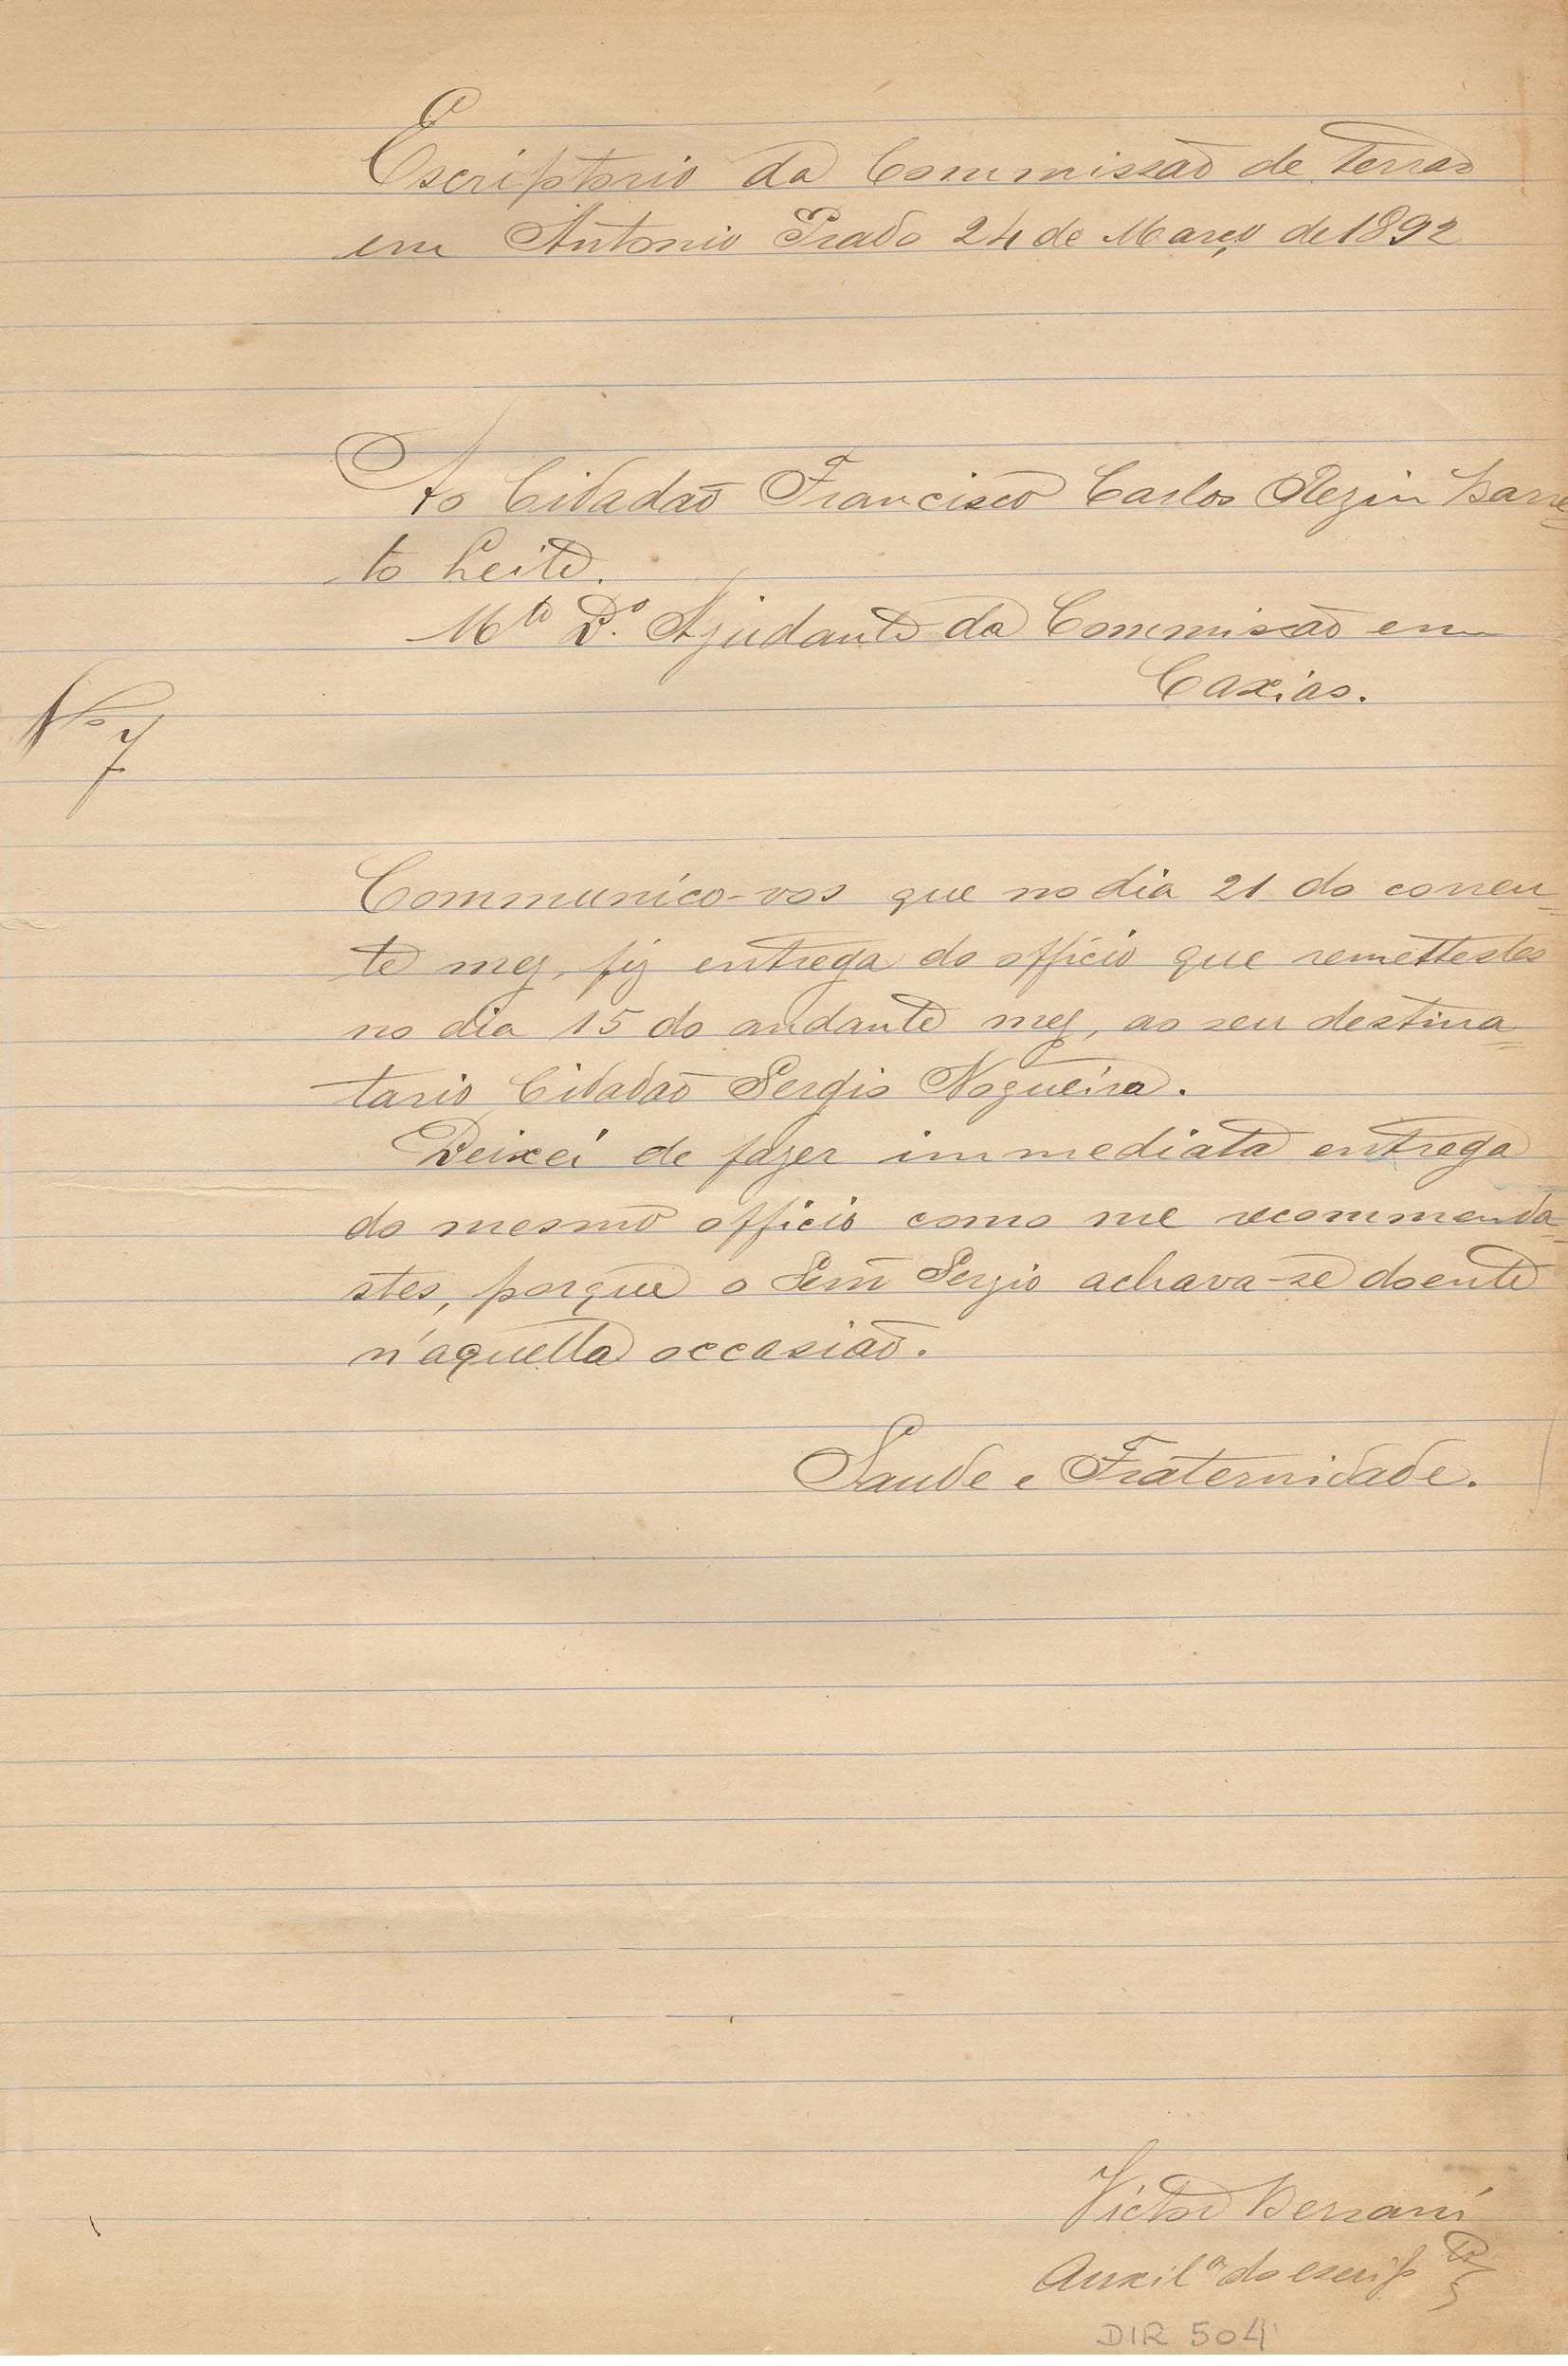 Escriptorio da Commissão de terras
em Antonio Prado 24 de Março de 1892
Ao Cidadão Francisco Carlos Rezin Barre=
to Leite.
M.to D.º Ajudante da Commissão em
Caxias.
Nº
7
Communico-vos que no dia 21 do corren=
te mez, fiz entrega do officio que remettestes
no dia 15 do andante mez, ao seu destina=
tario Cidadão Sergio Nogueira.
Deixei de fazer immediata entrega
do mesmo officio como me recommenda=
stes, porque o Sergio achava-se doente
n'aquella occasião.
Saude e Fraternidade.
Victor
Auxil.ar do escrip.to
DIR 504